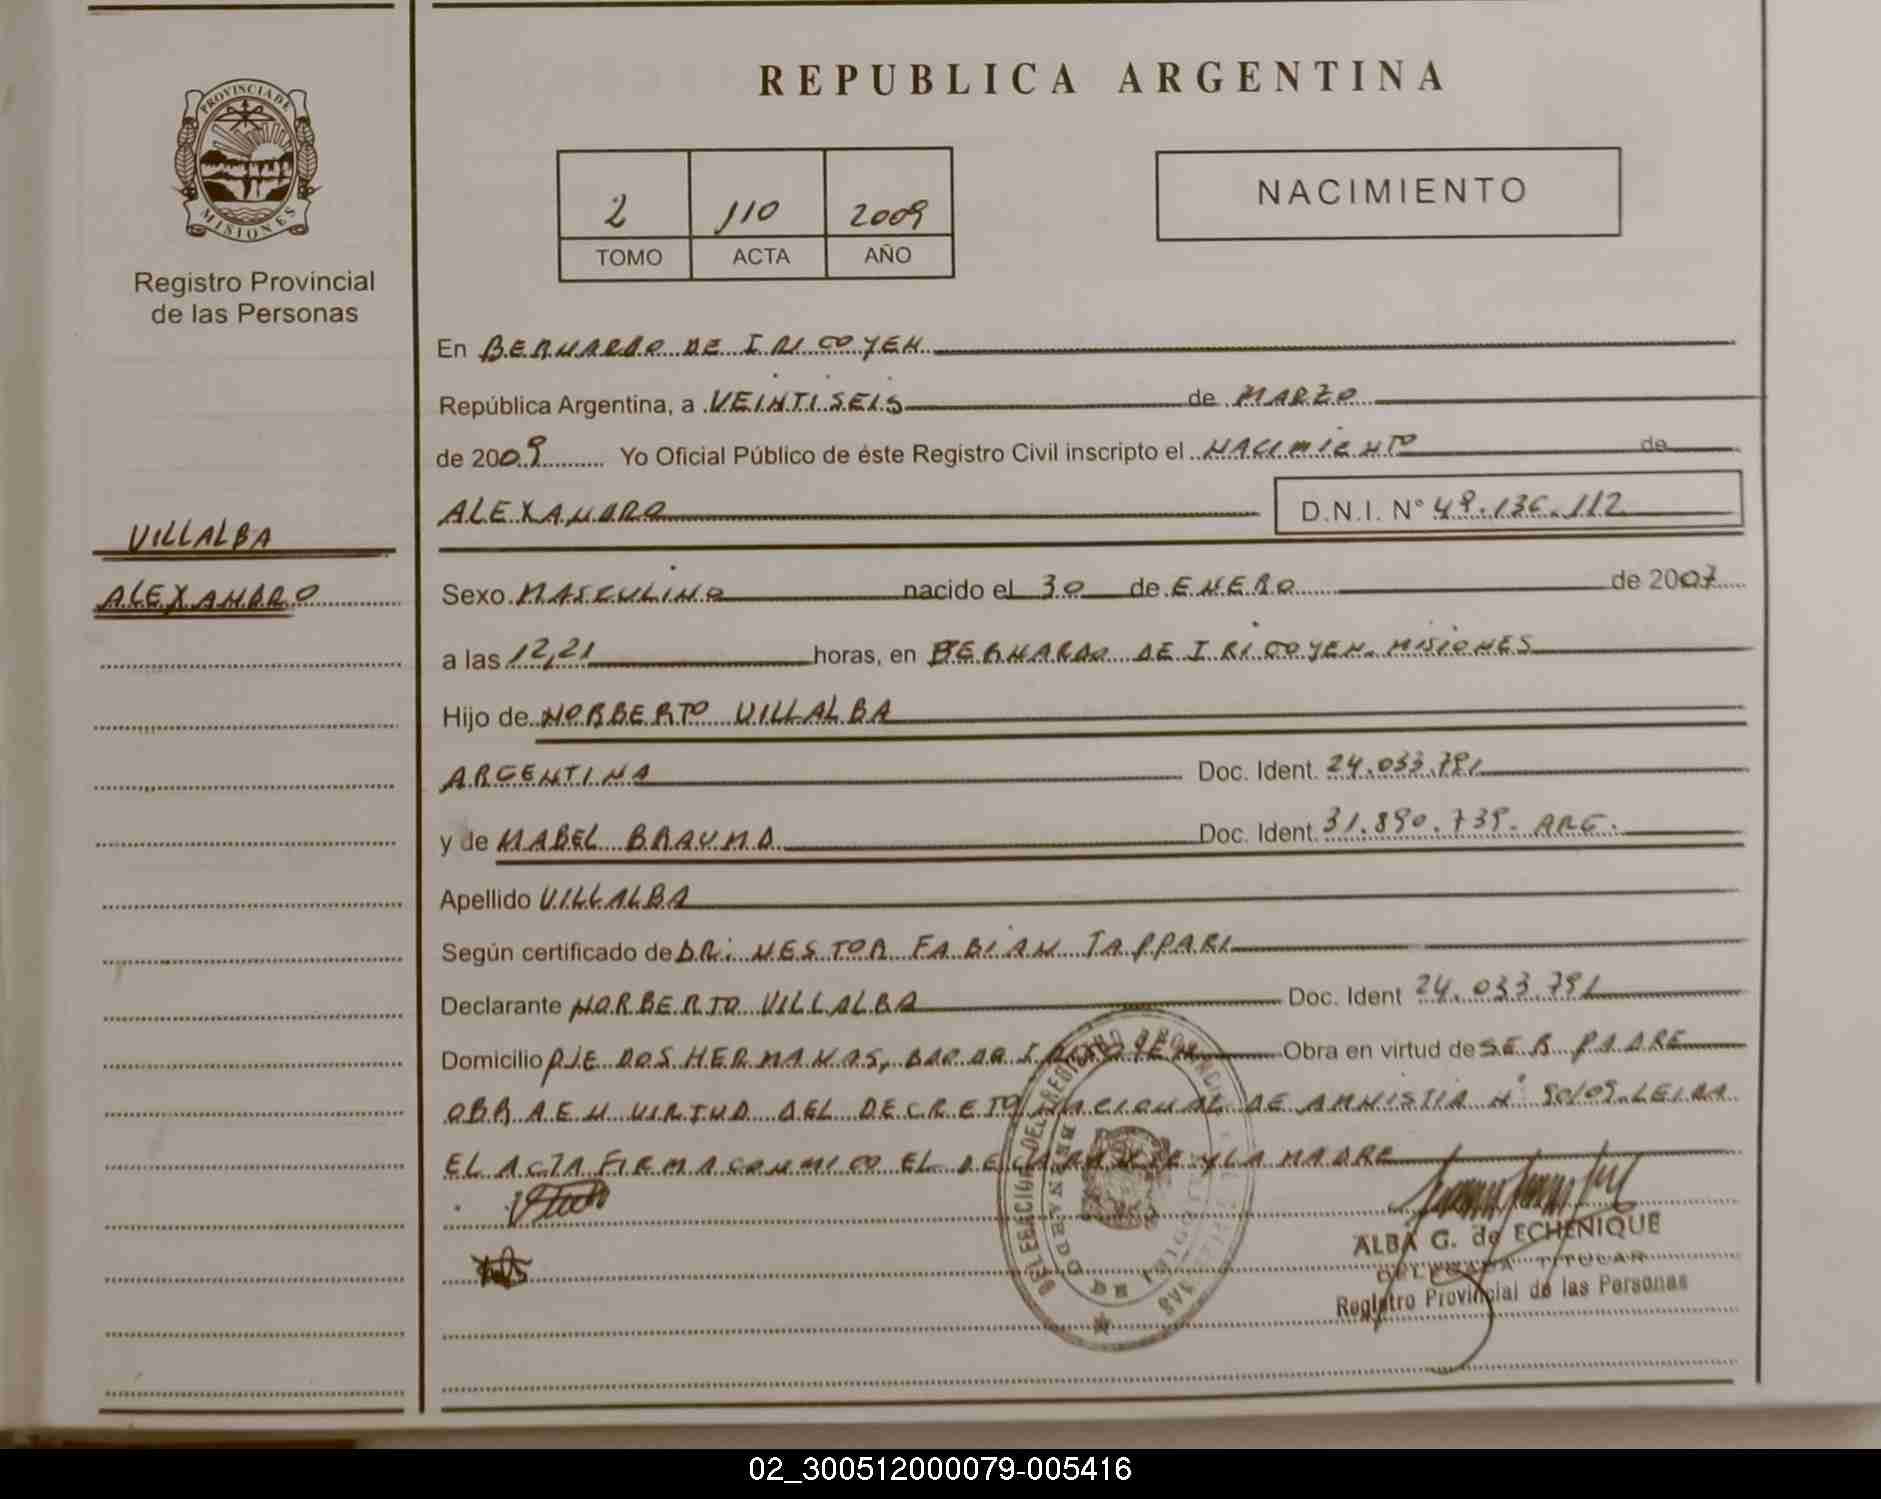 PROVINCIA DE
MISIONES
Registro Provincial
de las Personas
VILLALBA
ALEXANDRO
REPUBLICA ARGENTINA
2 110 2009
TOMO ACTA AÑO
NACIMIENTO
En BERNARDO DE IRIGOYEN
República Argentina, a VEINTISEIS de MARZO
de 2009 Yo Oficial Público de éste Registro Civil inscripto el NACIMIENTO de
ALEXANDRO D.N.I. N° 49.136.112
Sexo MASCULINO nacido el 30 de ENERO de 2007
a las 12,21 horas, en BERNARDO DE IRIGOYEN. MISIONES
Hijo de NORBERTO VILLALBA
ARGENTINA Doc. Ident. 24.033.791
y de MABEL BRAUND Doc. Ident. 31.890.739. ARG.
Apellido VILLALBA
Según certificado de DR: NESTOR FABIAN TAPPARI
Declarante NORBERTO VILLALBA Doc. Ident 24.033.791
Domicilio PJE DOS HERMANAS, Obra en virtud de SER PADRE
OBRA EN VIRTUD DEL DECRETO NACIONAL DE AMNISTIA N° 90/09. LEIDA
EL ACTA FIRMA CONMIGO EL DECLARANTE Y LA MADRE
DELEGACION DEL REGISTRO PROVINCIAL
BERNARDO DE IRIGOYEN
ALBA G. de ECHENIQUE
DELEGADA TITULAR
Registro Provincial de las Personas
02_300512000079-005416